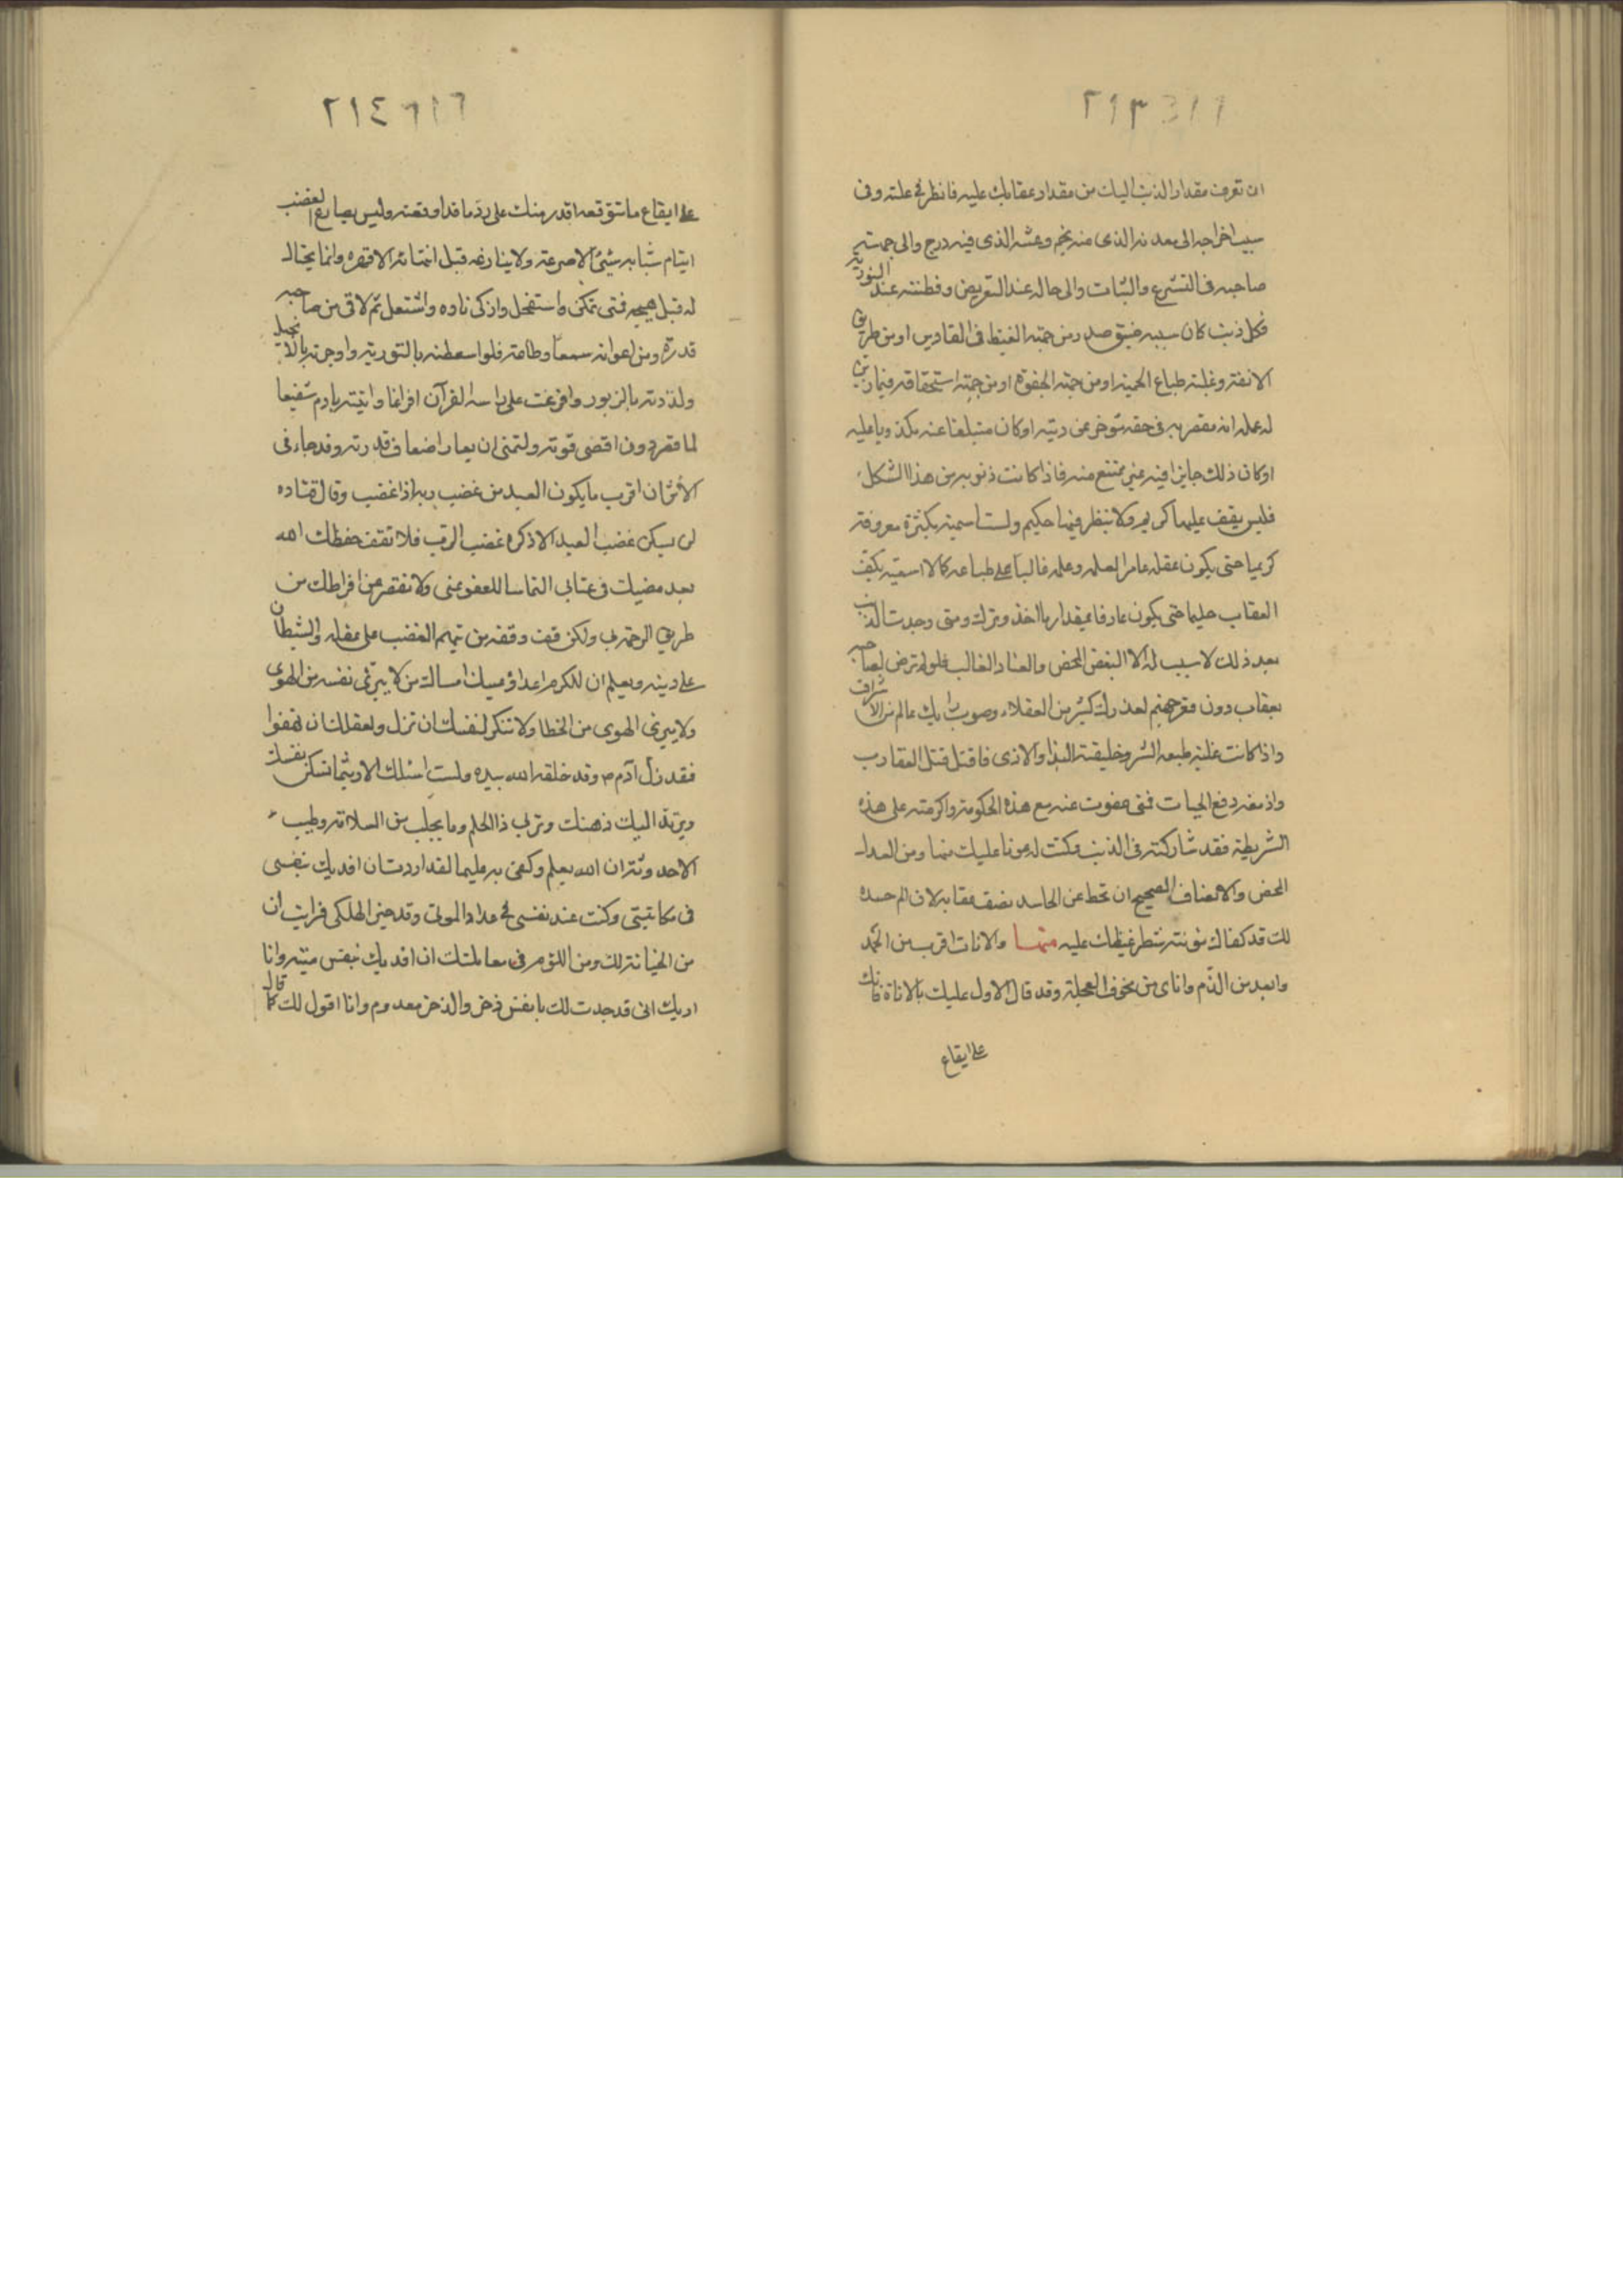 ٢١٣
ان تعرف مقدار الذنب اليك من مقدار عقابك عليه فانظر في علته وفى
سبب اخراجه الى معدنه الذى منه نجم وعشه الذى فيه درج والى جهة
صاحبه فى التسرع والثبات والى حاله عند التعريض وفطنته عند التوبة
فكل ذنب كان سببه ضيق صدر من جهة الغيظ فى المقادير او من طريق
الانفة وغلبة طباع الحمية او من جهة الجفوة او من جهة استحقاقه فيما زين
له عمله انه مقصر به فى حقه مؤخر عن رتبته او كان مبلغا عنه مكذوبا عليه
او كان ذلك جايزا فيه غير ممتنع منه فاذا كانت ذنوبه من هذا الشكل
فليس يقف عليها كريم ولا ينظر فيها حكيم ولست اسميه بكثرة معروفه
كريما حتى يكون عقله غامرا لعلمه وعلمه غالبا على طباعه كما لا اسميه بكف
العقاب حليما حتى يكون عارفا بمقدار ما اخذ وترك ومتى وجدت الذنب
بعد ذلك لا سبب له الا البغض المحض والعناد الغالب فلو لم ترض لصاحبه
بعقاب دون قعر جهنم لعذرك كثير من العقلاء وصوب رايك عالم من الاشراف
واذا كانت علية طبعه الشر وخليقته البذا والاذى فاقتله قتل العقارب
وادمغه دمغ الحيات فمتى عفوت عنه مع هذه الحكومة واكرمته على هذه
الشريطة فقد شاركته فى الذنب وكنت له عونا عليك منها ومن العدل
المحض والانصاف الصحيح ان تحط عن الحاسد نصف عقابه لان الم حسده
لك قد كفاك مؤنة شطر غيظك عليه منها والانات اقرب من الحمد
وابعد من الذّم واناى من خوف العجلة وقد قال الاول عليك بالاناة فانك
على ايقاع
٢١٤
على ايقاع ما تتوقعه اقدر منك على ردّ ما قد اوقعته وليس يصارع الغضب
ايام شبابه شئ الا صرعه ولا ينازعه قبل انتهائه الا قهره وانما يحتال
له قبل هيجه فمتى تمكن واستفحل واذكى ناره واشتعل ثم لاقى من صاحبه
قدرة ومن اعوانه سمعا وطاعة فلو اسعطته بالتورية واوجرته بالانجيل
ولذدته بالزبور وافرغت على راسه القرآن افراغا واتيته بادم شفيعا
لما قصر دون اقصى قوته ولتمنى ان يعار اضعاف قدرته وقد جاء فى
الاثر ان اقرب ما يكون العبد من غضب ربه اذا غضب وقال قتاده
لن يسكن غضب العبد الا ذكره غضب الرب فلا تقف حفظك الله
بعد مضيك فى عتابى التماسا للعفو عنى ولا تقصر عن افراطك من
طريق الرحمة بى ولكن قف وقفة من يتهم الغضب على عقله والشيطان
على دينه ويعلم ان للكرم اعداء ويمسك امساك من لا يبرئ نفسه من الهوى
ولا يبرئ الهوى من الخطا ولا تنكر لنفسك ان تزل ولعقلك ان يهفوا
فقد زل آدم م وقد خلقه الله بيده ولست اسئلك الا ريثما تسكن نفسك
ويرتد اليك ذهنك وترى ذا الحلم وما يجلب من السلامة وطيب
الاحدوثة ان الله يعلم وكفى به عليما لقد اردت ان افديك بنفسى
فى مكاتبتى وكنت عند نفسى فى عداد الموتى وقد حيز الهلكى فرايت ان
من الخيانة لك ومن اللؤم فى معاملتك ان افديك بنفس ميتة وانا
اريك انى قد جدت لك بانفس ذخر والذخر معدوم وانا اقول لك كما قال